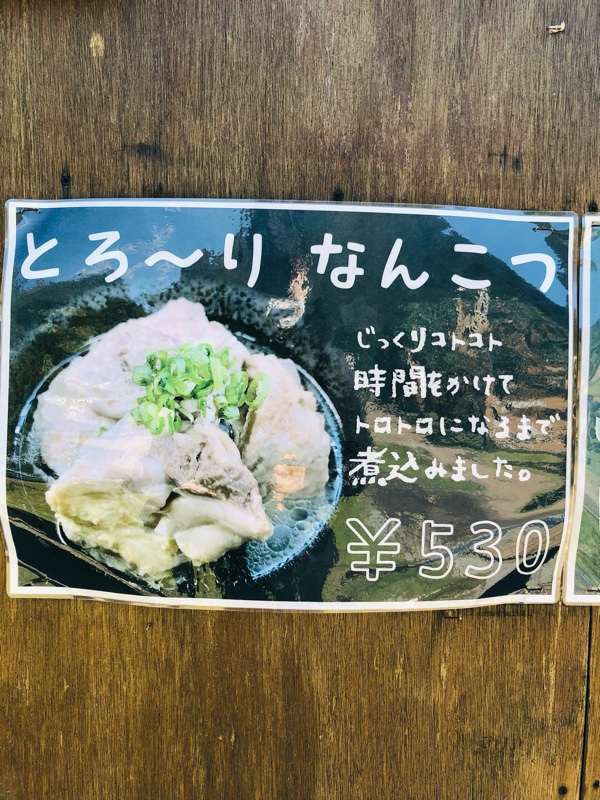 とろ〜り なんこつ
じっくりコトコト
時間をかけて
トロトロになるまで
煮込みました。
¥530